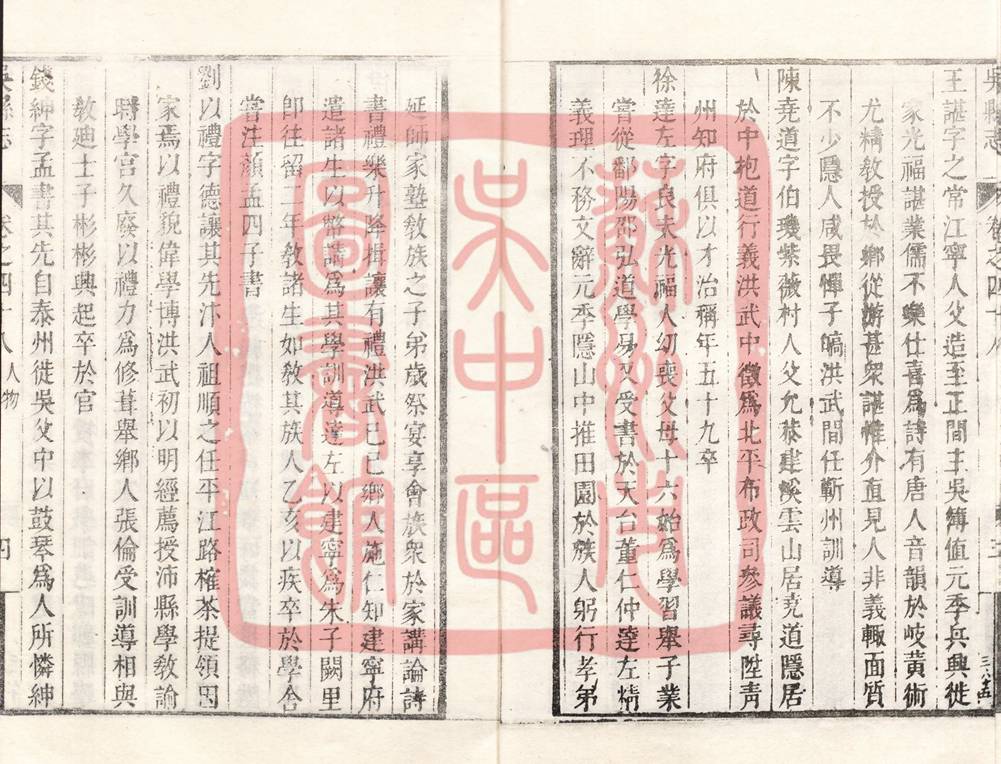 吳縣志
卷之四十八
王諶字之常江寧人父造至正間主吳簿值元季兵興徙
家光福諶業儒不樂仕喜爲詩有唐人音韻於岐黃術
尤精教授於鄉從游甚衆諶惟介直見人非義輒面質
不少隱人咸畏憚子嵪洪武間任蘄州訓導
陳堯道字伯璣紫薇村人父允恭建溪雲山居堯道隱居
於中抱道行義洪武中徵爲北平布政司參議尋陞青
州知府俱以才治稱年五十九卒
徐達左字良夫光福人幼喪父母十六始爲學習舉子業
嘗從鄱陽邵弘道學易又受書於天台董仁仲達左精
義理不務文辭元季隱山中推田園於族人躬行孝弟
延師家塾敎族之子弟歲祭宴享會族衆於家講論詩
書禮樂升降揖讓有禮洪武己巳鄉人施仁知建寧府
遣諸生以幣請爲其學訓導達左以建寧爲朱子闕里
卽往留二年敎諸生如敎其族人乙亥以疾卒於學舍
嘗注顔孟四子書
劉以禮字德讓其先汴人祖順之任平江路榷茶提領因
家焉以禮貌偉學博洪武初以明經薦授沛縣學敎諭
時學宮久廢以禮力爲修葺舉鄉人張倫受訓導相與
敎廸士子彬彬興起卒於官
錢紳字孟書其先自泰州徙吳父中以鼓琴爲人所憐紳
吳縣志
卷之四十八
人物
四
蘇州市
吳中區
圖書館